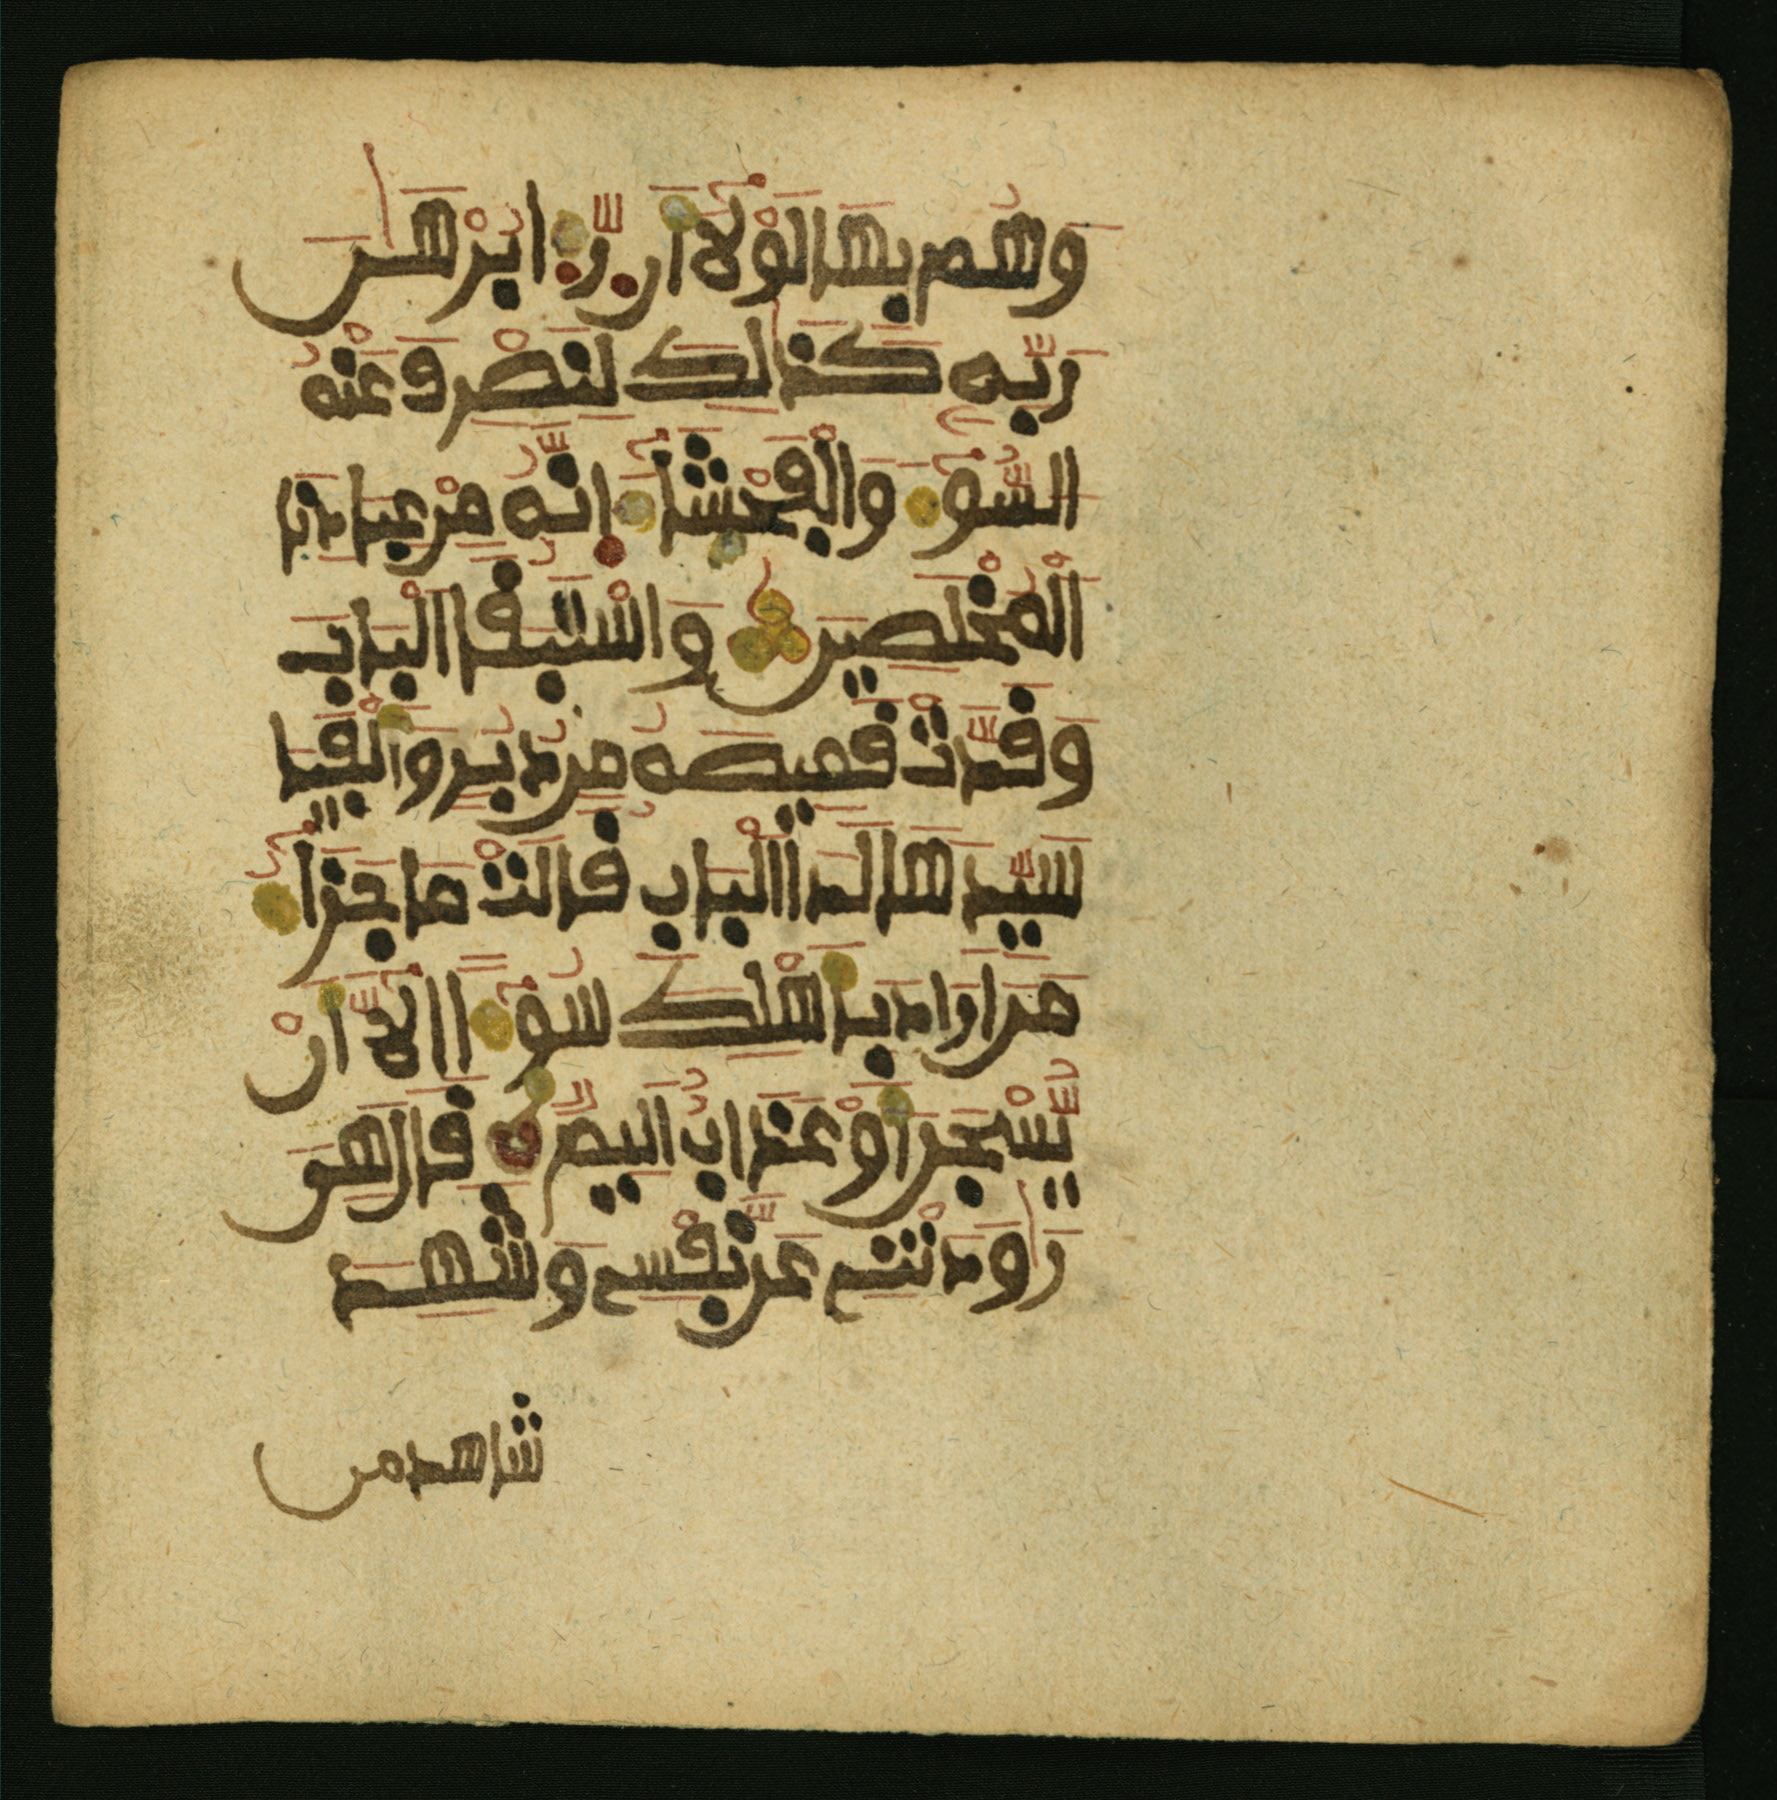 وَهَمَّ بِهَا لَوْلَا أَن رَّءَا بُرْهَٰنَ
رَبِّهِ كَذَٰلِكَ لِنَصْرِفَ عَنْهُ
السُّوءَ وَالْفَحْشَاءَ إِنَّهُ مِنْ عِبَادِنَا
الْمُخْلَصِينَ وَاسْتَبَقَا الْبَابَ
وَقَدَّتْ قَمِيصَهُ مِن دُبُرٍ وَأَلْفَيَا
سَيِّدَهَا لَدَا الْبَابِ قَالَتْ مَا جَزَاءُ
مَنَ اَرَادَ بِأَهْلِكَ سُوءًا إِلَّا أَنْ
يُّسْجَنَ أَوْ عَذَابٌ أَلِيمٌ قَالَ هِيَ
رَٰوَدَتْنِي عَن نَّفْسِي وَشَهِدَ
شاهد من